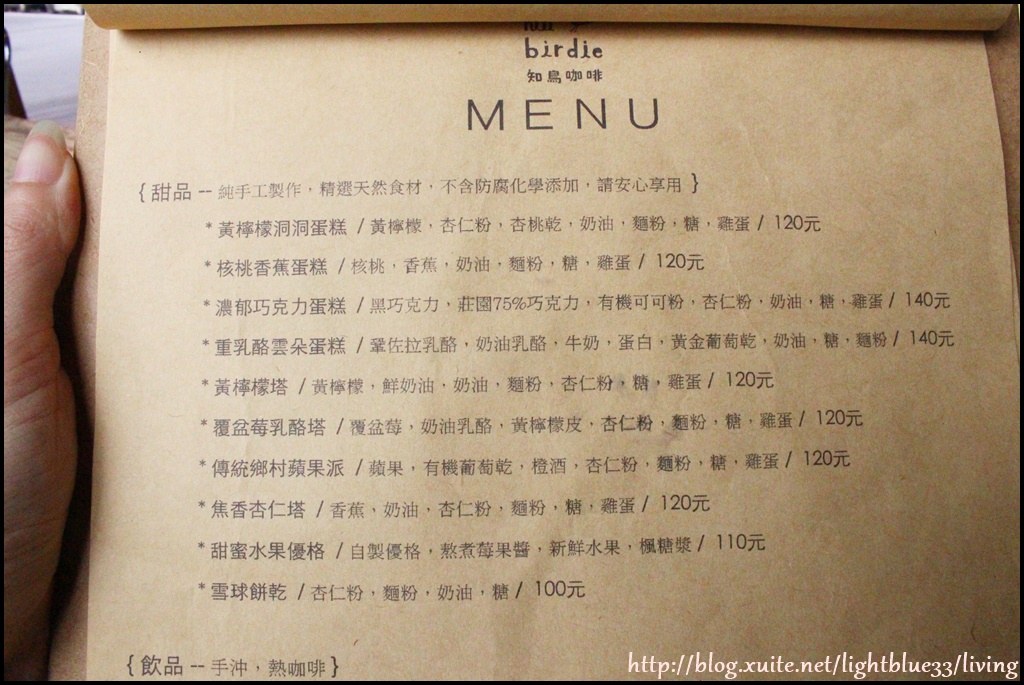 birdie
知鳥咖啡
MENU
{ 甜品 -- 純手工製作，精選天然食材，不含防腐化學添加，請安心享用 }
* 黃檸檬洞洞蛋糕 / 黃檸檬，杏仁粉，杏桃乾，奶油，麵粉，糖，雞蛋 / 120元
* 核桃香蕉蛋糕 / 核桃，香蕉，奶油，麵粉，糖，雞蛋 / 120元
* 濃郁巧克力蛋糕 / 黑巧克力，莊園75%巧克力，有機可可粉，杏仁粉，奶油，糖，雞蛋 / 140元
* 重乳酪雲朵蛋糕 / 鞏佐拉乳酪，奶油乳酪，牛奶，蛋白，黃金葡萄乾，奶油，糖，麵粉 / 140元
* 黃檸檬塔 / 黃檸檬，鮮奶油，奶油，麵粉，杏仁粉，糖，雞蛋 / 120元
* 覆盆莓乳酪塔 / 覆盆莓，奶油乳酪，黃檸檬皮，杏仁粉，麵粉，糖，雞蛋 / 120元
* 傳統鄉村蘋果派 / 蘋果，有機葡萄乾，橙酒，杏仁粉，麵粉，糖，雞蛋 / 120元
* 焦香杏仁塔 / 香蕉，奶油，杏仁粉，麵粉，糖，雞蛋 / 120元
* 甜蜜水果優格 / 自製優格，熬煮莓果醬，新鮮水果，楓糖漿 / 110元
* 雪球餅乾 / 杏仁粉，麵粉，奶油，糖 / 100元
{ 飲品 -- 手沖，熱咖啡 }
http://blog.xuite.net/lightblue33/living